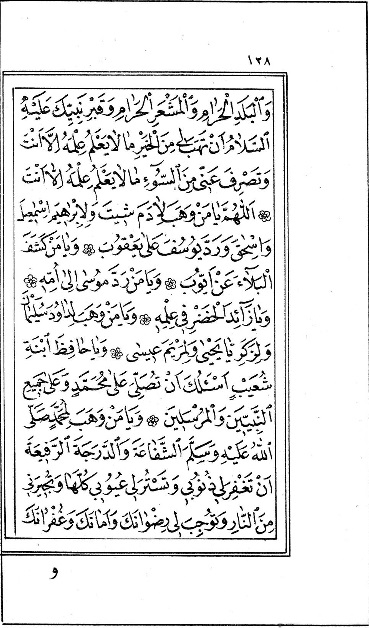 ١٢٨
وَالْبَلَدِ الْحَرَامِ وَالْمَشْعَرِ الْحَرَامِ وَقَبْرِ نَبِيِّكَ عَلَيْهِ
السَّلَامُ اَنْ تَهَبَ لِي مِنَ الْخَيْرِ مَا لَا يَعْلَمُ عِلْمَهُ اِلَّا اَنْتَ
وَتَصْرِفَ عَنِّي مِنَ السُّوءِ مَا لَا يَعْلَمُ عِلْمَهُ اِلَّا اَنْتَ
اَللّٰهُمَّ يَا مَنْ وَهَبَ لِاٰدَمَ شِيتَ وَلِاِبْرٰهِيمَ اِسْمٰعِيلَ
وَاِسْحٰقَ وَرَدَّ يُوسُفَ عَلٰى يَعْقُوبَ وَيَا مَنْ كَشَفَ
الْبَلَاءَ عَنْ اَيُّوبَ وَيَا مَنْ رَدَّ مُوسٰى اِلٰى اُمِّهِ
وَيَا زَائِدَ الْخَضِرِ فِي عِلْمِهِ وَيَا مَنْ وَهَبَ لِدَاوُدَ سُلَيْمٰنَ
وَلِزَكَرِيَّا يَحْيٰى وَلِمَرْيَمَ عِيسٰى وَيَا حَافِظَ ابْنَةِ
شُعَيْبٍ اَسْئَلُكَ اَنْ تُصَلِّيَ عَلٰى مُحَمَّدٍ وَعَلٰى جَمِيعِ
النَّبِيِّينَ وَالْمُرْسَلِينَ وَيَا مَنْ وَهَبَ لِمُحَمَّدٍ صَلَّى
اللّٰهُ عَلَيْهِ وَسَلَّمَ الشَّفَاعَةَ وَالدَّرَجَةَ الرَّفِيعَةَ
اَنْ تَغْفِرَ لِي ذُنُوبِي وَتَسْتُرَ لِي عُيُوبِي كُلَّهَا وَتُجِيرَنِي
مِنَ النَّارِ وَتُوجِبَ لِي رِضْوَانَكَ وَاَمَانَكَ وَغُفْرَانَكَ
و